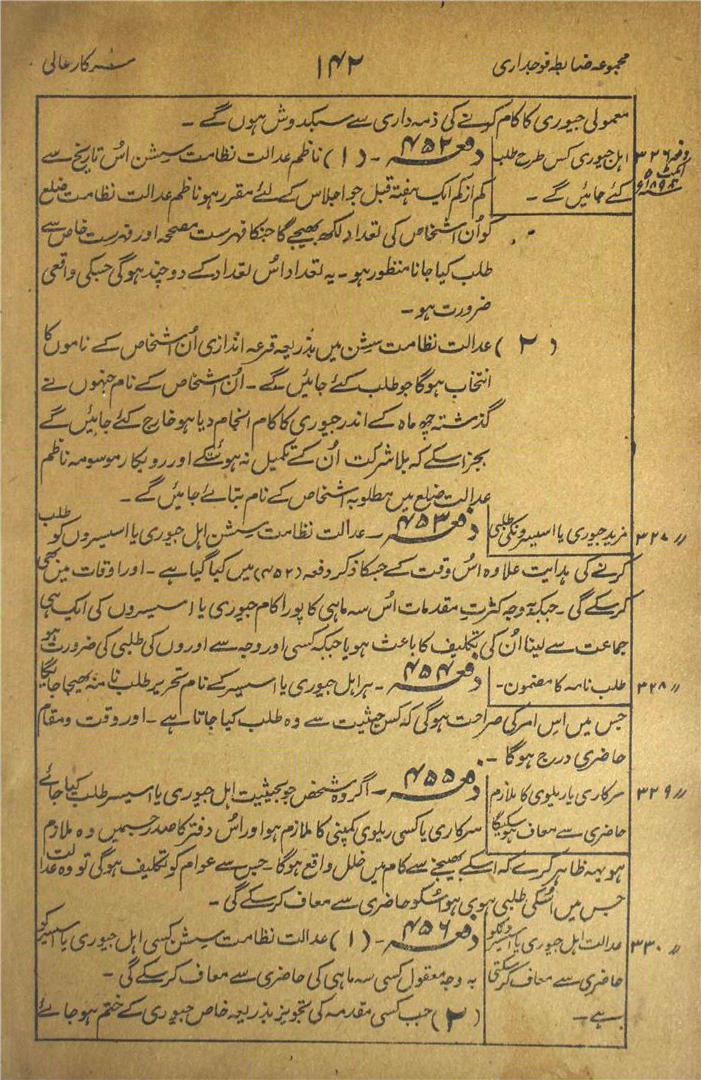 مجموعہ ضابطہ فوجداری ۱۴۲ سرکار عالی
معمولی جیوری کا کام کرنے کی ذمہ داری سے سبکدوش ہوں گے ۔
دفعہ ۳۲۶ ایکٹ ۵ ۱۸۹۸ء
اہل جیوری کس طرح طلب
کئے جائیں گے ۔
دفعہ ۴۵۲ ۔ (۱) ناظم عدالت نظامت سیشن اُس تاریخ سے
کم از کم ایک ہفتہ قبل جو اجلاس کے لئے مقرر ہو ناظم عدالت نظامت ضلع
کو اُن اشخاص کی تعداد لکھ بھیجے گا جنکا فہرست مصححہ اور فہرست خاص سے
طلب کیا جانا منظور ہو ۔ یہ تعداد اُس تعداد کے دو چند ہوگی جسکی واقعی
ضرورت ہو ۔
(۲) عدالت نظامت سیشن میں بذریعہ قرعہ اندازی اُن اشخاص کے ناموں کا
انتخاب ہوگا جو طلب کئے جائیں گے ۔ اُن اشخاص کے نام جنہوں نے
گذشتہ چھ ماہ کے اندر جیوری کا کام انجام دیا ہو خارج کئے جائیں گے
بجز اسکے کہ بلا شرکت اُن کے تکمیل نہ ہوسکے اور روبکار موسومہ ناظم
عدالت ضلع میں مطلوبہ اشخاص کے نام بتائے جائیں گے ۔
〃 ۳۲۷
مزید جیوری یا اسیسرونکی طلبی
دفعہ ۴۵۳ ۔ عدالت نظامت سیشن اہل جیوری یا اسیسروں کو طلب
کرنے کی ہدایت علاوہ اُس وقت کے جسکا ذکر دفعہ (۴۵۲) میں کیا گیا ہے ۔ اور اوقات میں بھی
کرسکے گی ۔ جبکہ بوجہ کثرتِ مقدمات اُس سہ ماہی کا پورا کام جیوری یا اسیسروں کی ایک ہی
جماعت سے لینا اُن کی تکلیف کا باعث ہو یا جبکہ کسی اور وجہ سے اوروں کی طلبی کی ضرورت ہو
〃 ۳۲۸
طلب نامہ کا مضمون ۔
دفعہ ۴۵۴ ۔ ہر اہل جیوری یا اسیسر کے نام تحریر طلب نامہ بھیجا جائیگا
جس میں اِس امر کی صراحت ہوگی کہ کس حیثیت سے وہ طلب کیا جاتا ہے ۔ اور وقت و مقام
حاضری درج ہوگا ۔
〃 ۳۲۹
سرکاری یا ریلوی کا ملازم
حاضری سے معاف ہوسکیگا
دفعہ ۴۵۵ ۔ اگر وہ شخص جو بحیثیت اہل جیوری یا اسیسر طلب کیا جائے
سرکاری یا کسی ریلوی کمپنی کا ملازم ہو اور اُس دفتر کا صدر جسمیں وہ ملازم
ہو یہہ ظاہر کرے کہ اسکے بھیجنے سے کام میں خلل واقع ہوگا ۔ جس سے عوام کو تکلیف ہوگی تو وہ عدالت
جس میں اُسکی طلبی ہوی ہو اُسکو حاضری سے معاف کرسکے گی ۔
〃 ۳۳۰
عدالت اہل جیوری یا اسیسر کو
حاضری سے معاف کرسکتی
ہے ۔
دفعہ ۴۵۶ ۔ (۱) عدالت نظامت سیشن کسی اہل جیوری یا اسیسر کو
بہ وجہ معقول کسی سہ ماہی کی حاضری سے معاف کرسکے گی ۔
(۲) جب کسی مقدمہ کی تجویز بذریعہ خاص جیوری کے ختم ہو جائے